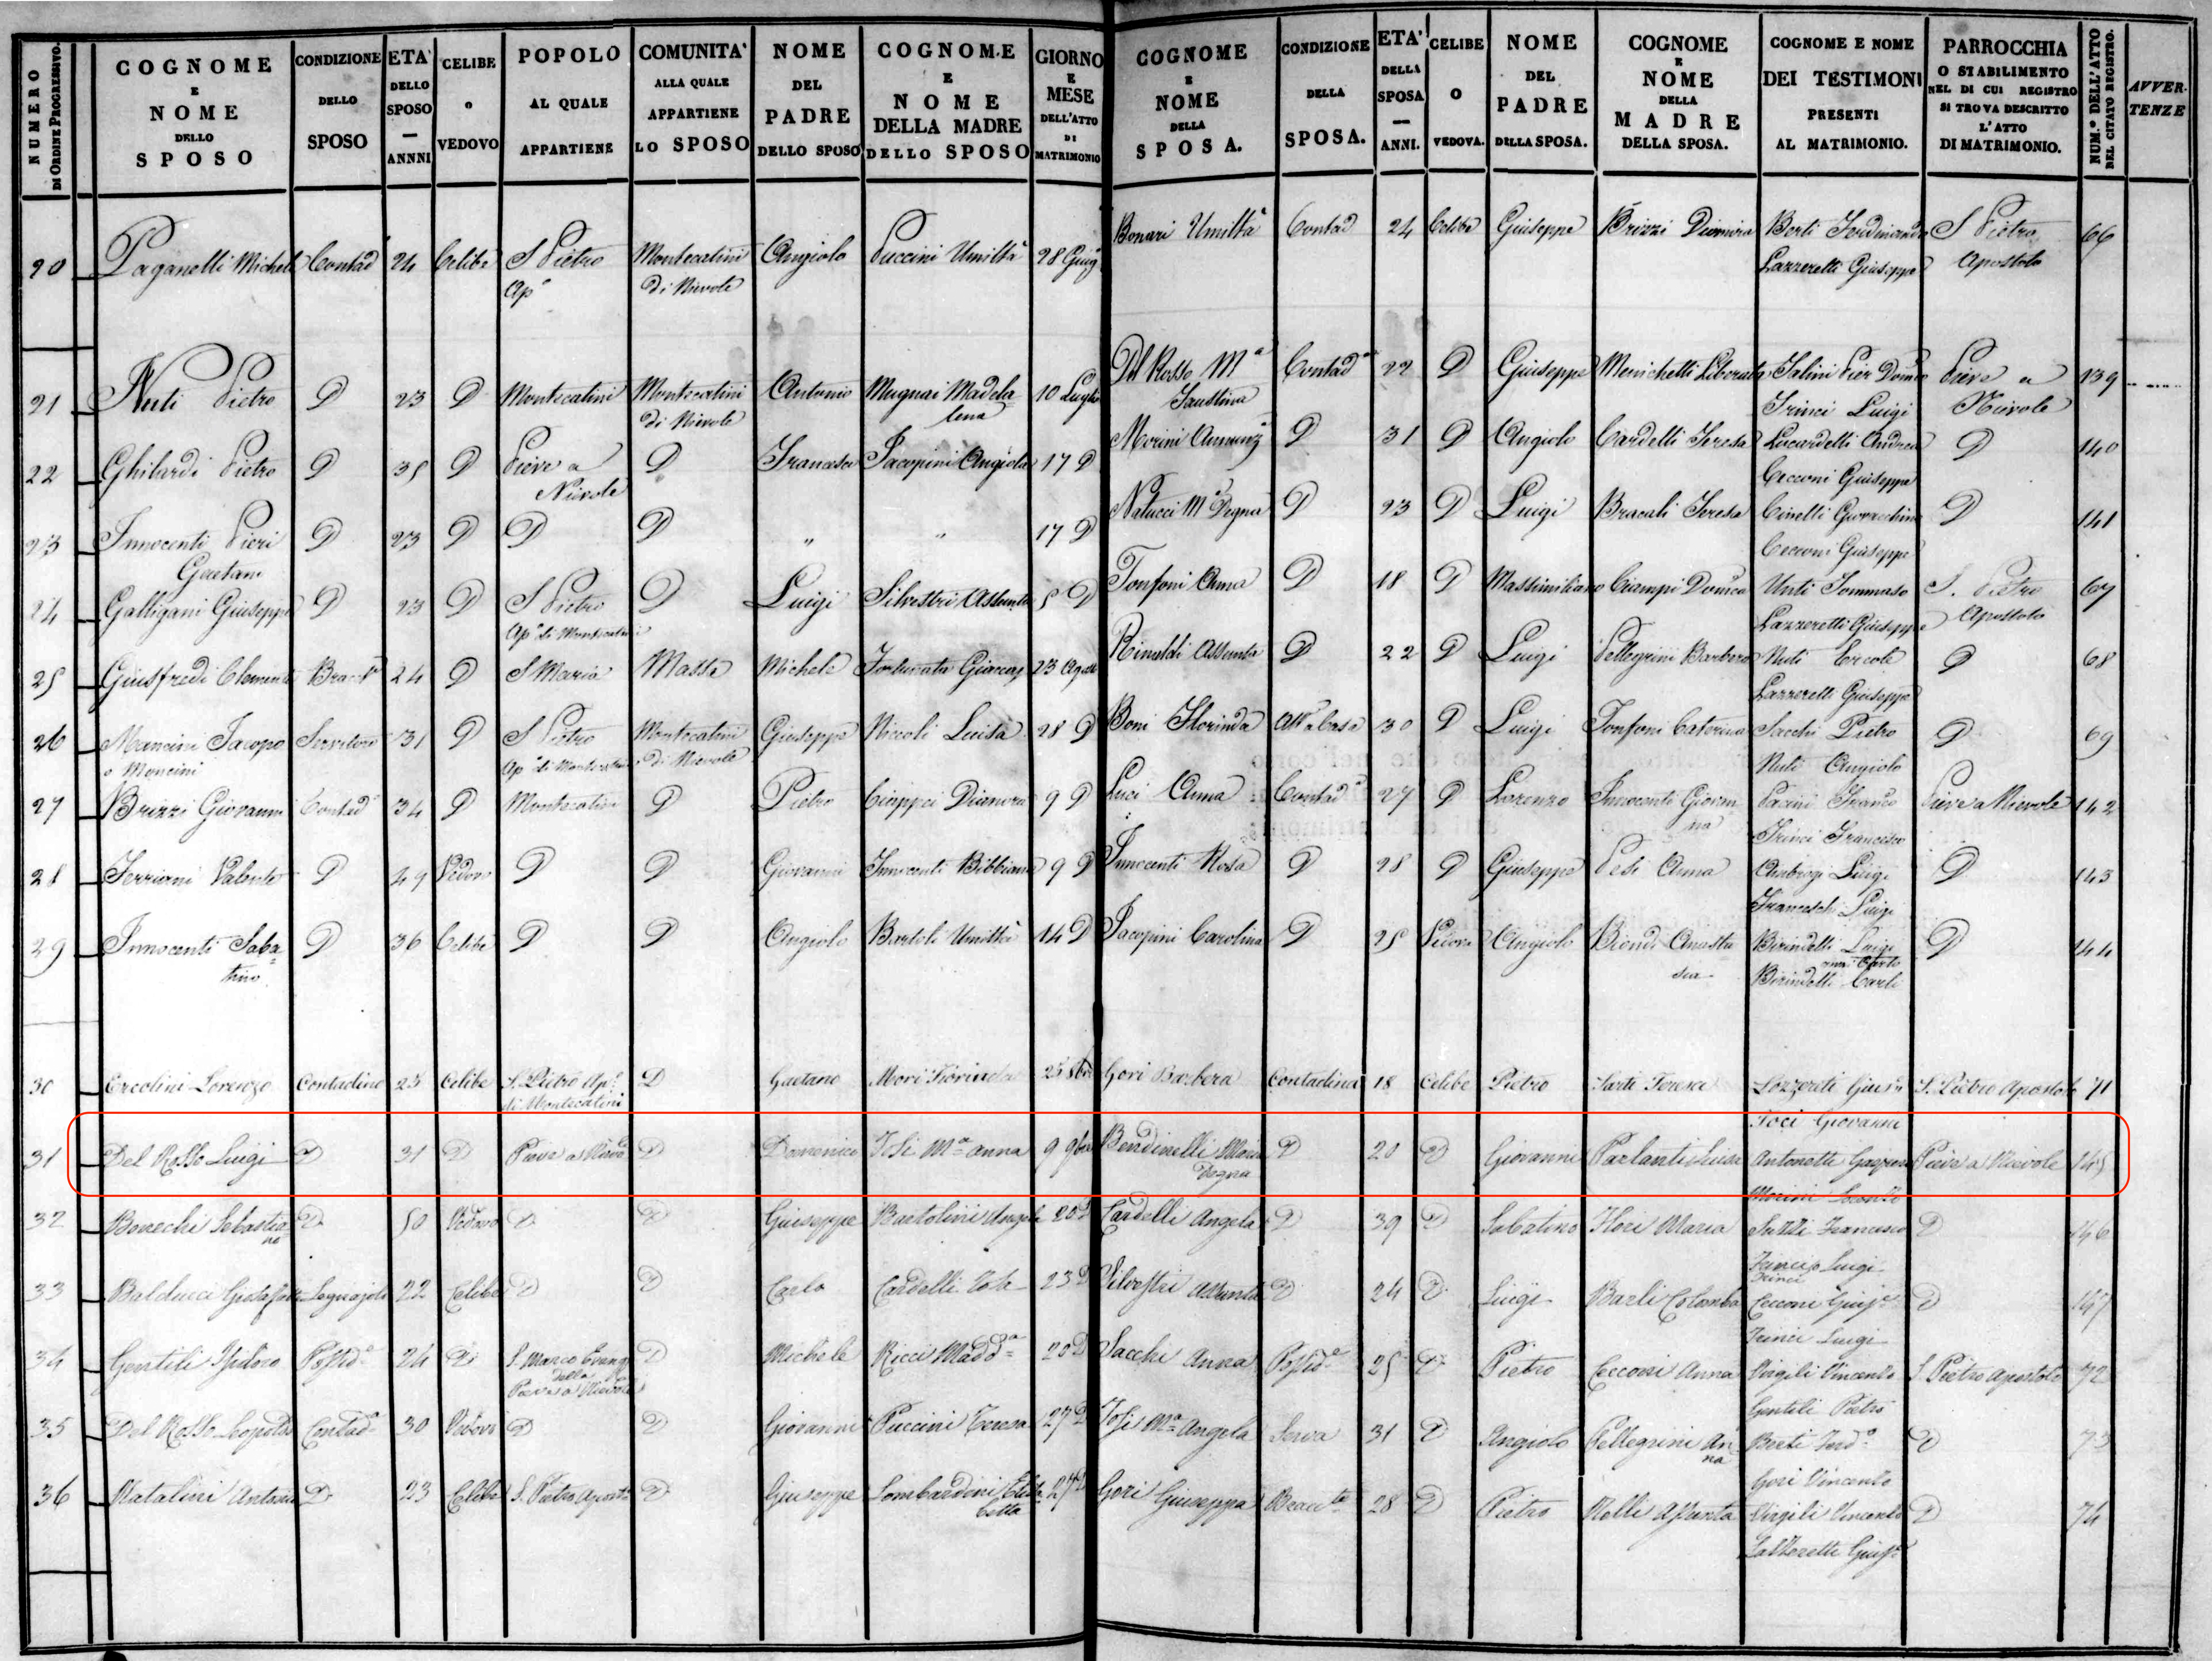 NUMERO DI ORDINE PROGRESSIVO.
COGNOME E NOME DELLO SPOSO
CONDIZIONE DELLO SPOSO
ETA' DELLO SPOSO — ANNNI
CELIBE O VEDOVO
POPOLO AL QUALE APPARTIENE
COMUNITA' ALLA QUALE APPARTIENE LO SPOSO
NOME DEL PADRE DELLO SPOSO
COGNOME E NOME DELLA MADRE DELLO SPOSO
GIORNO E MESE DELL'ATTO DI MATRIMONIO
COGNOME E NOME DELLA SPOSA.
CONDIZIONE DELLA SPOSA.
ETA' DELLA SPOSA — ANNI.
CELIBE O VEDOVA.
NOME DEL PADRE DELLA SPOSA.
COGNOME E NOME DELLA MADRE DELLA SPOSA.
COGNOME E NOME DEI TESTIMONI PRESENTI AL MATRIMONIO.
PARROCCHIA O STABILIMENTO NEL DI CUI REGISTRO SI TROVA DESCRITTO L'ATTO DI MATRIMONIO.
NUM.º DELL'ATTO NEL CITATO REGISTRO.
AVVERTENZE
20 Paganelli Michele Contad 24 Celibe S Pietro Ap° Montecatini di Nievole Angiolo Puccini Umiltà 28 Giug Bonari Umiltà Contad 24 Celibe Giuseppe Brizzi Dionira Berti Ferdinando Lazzeretti Giuseppe S Pietro Apostolo 66
21 Nuti Pietro D 23 D Montecatini Montecatini di Nievole Antonio Mugnai Madalena 10 Luglio Del Rosso Mª Faustina Contadª 22 D Giuseppe Menichetti Liberata Salini Pier Domco Trinci Luigi Pieve a Nievole 139
22 Ghilardi Pietro D 35 D Pieve a Nievole D Francesco Jacopini Angiola 17 D Morini Annunzª D 31 D Angiolo Cardelli Teresa Lucardelli Andrea Cecconi Giuseppe D 140
23 Innocenti Pieri Gaetano D 23 D D D " " 17 D Natucci Mª Degna D 23 D Luigi Bracali Teresa Cinelli Cecconi Giuseppe D 141
24 Galligani Giuseppe D 23 D S Pietro Ap° di Montecatini D Luigi Silvestri Assunta 5 D Tonfoni Anna D 18 D Massimiliano Ciampi Domca Nuti Tommaso Lazzeretti Giuseppe S. Pietro Apostolo 67
25 Giusfredi Clemente 24 D S Maria Massa Michele Fortunata 23 Agos Rinaldi Assunta D 22 D Luigi Pellegrini Barbera Nuti Ercole Lazzeretti Giuseppe D 68
26 Mancini Jacopo o Moncini Servitore 31 D S Pietro Ap° di Montecatini Montecatini di Nievole Giuseppe Niccoli Luisa 28 D Boni Florinda Attª a Casa 30 D Luigi Tonfoni Caterina Sacchi Pietro Nuti Angiolo D 69
27 Brizzi Giovanni Contadº 34 D Montecatini D Pietro Dianora 9 D Luci Anna Contadª 27 D Lorenzo Innocenti Giovanna Pacini Franco Trinci Francesco Pieve a Nievole 142
28 Ferrioni Valente D 49 Vedovo D D Giovanni Innocenti Bibbiana 9 D Innocenti Rosa D 28 D Giuseppe Pesi Anna Ambrogi Luigi Franceschi Luigi D 143
29 Innocenti Sabatino D 36 Celibe D D Angiolo Bartoli Umiltà 14 D Jacopini Carolina D 25 Vedova Angiolo Biondi Anastasia Birindelli Luigi Birindelli Carlo D 144
30 Ercolini Lorenzo Contadino 25 Celibe S. Pietro Ap° di Montecatini D Gaetano Mori Fiorinda 25 8bre Gori Barbera Contadina 18 Celibe Pietro Sarti Teresa Lozzereti Gius Toci Giovanni S. Pietro Apostolo 71
31 Del Rosso Luigi D 31 D Pieve a Nievole D Domenico Tosi Mª Anna 9 9bre Bendinelli Maria Degna D 20 D Giovanni Parlanti Luisa Antonetti Gaspero Morini Pieve a Nievole 145
32 Bonechi Sebastiano D 50 Vedovo D D Giuseppe Bartolini Angela 20 D Cardelli Angela D 39 D Sabatino Flori Maria Francesco Trinci Luigi D 146
33 Balducci Legnajolo 22 Celibe D D Carlo Cardelli 23 D Silvestri Assunta D 24 D Luigi Barli Colomba Cecconi Giuspe Trinci Luigi D 147
34 Gentili Isidoro Possidº 24 D S. Marco Evangª della Pieve a Nievole D Michele Ricci Maddª 20 D Sacchi Anna Possidª 25 D Pietro Cecconi Anna Virgili Vincenzo Gentili Pietro S. Pietro Apostolo 72
35 Del Rosso Leopoldo Contadº 30 Vedovo D D Giovanni Puccini Teresa 27 D Tosi Mª Angela Serva 31 D Angiolo Pellegrini Anna Berti Ferdº Gori Vincenzo D 73
36 Natalini Antonio D 23 Celibe S. Pietro Apostº D Giuseppe Lombardini Elisabetta 27 D Gori Giuseppa 28 D Pietro Nelli Assunta Virgili Vincenzo Lazzeretti Giuspe D 74